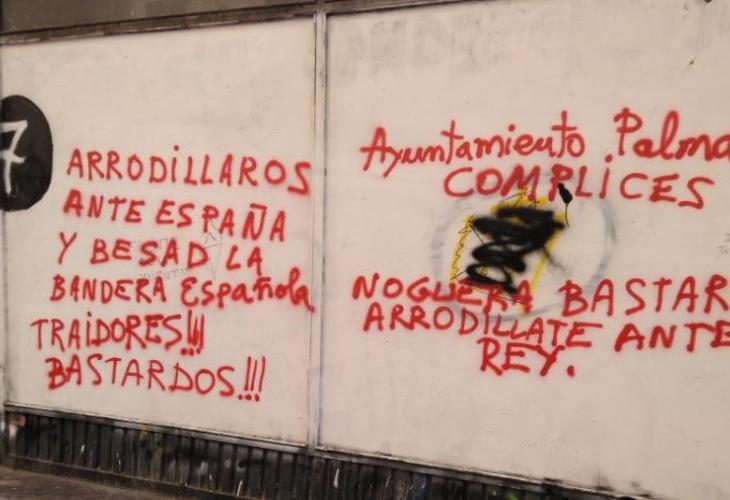 7
ARRODILLAROS
ANTE ESPAÑA
Y BESAD LA
BANDERA Española
TRAIDORES!!!
BASTARDOS!!!
Ayuntamiento Palma
COMPLICES
NOGUERA BASTAR
ARRODILLATE ANTE
REY.